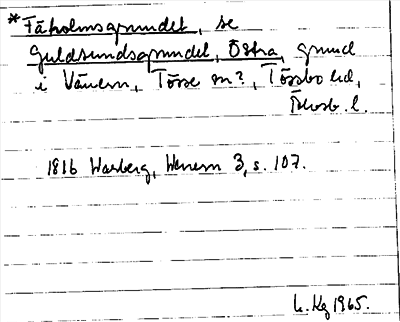 *Fåholmsgrundet, se
Guldsundsgrundet, Östra, grund
i Vänern, Tösse sn?, Tössbo hd,
Älvsb. l.
1816 Warberg, Wenern 3, s. 107.
1965.